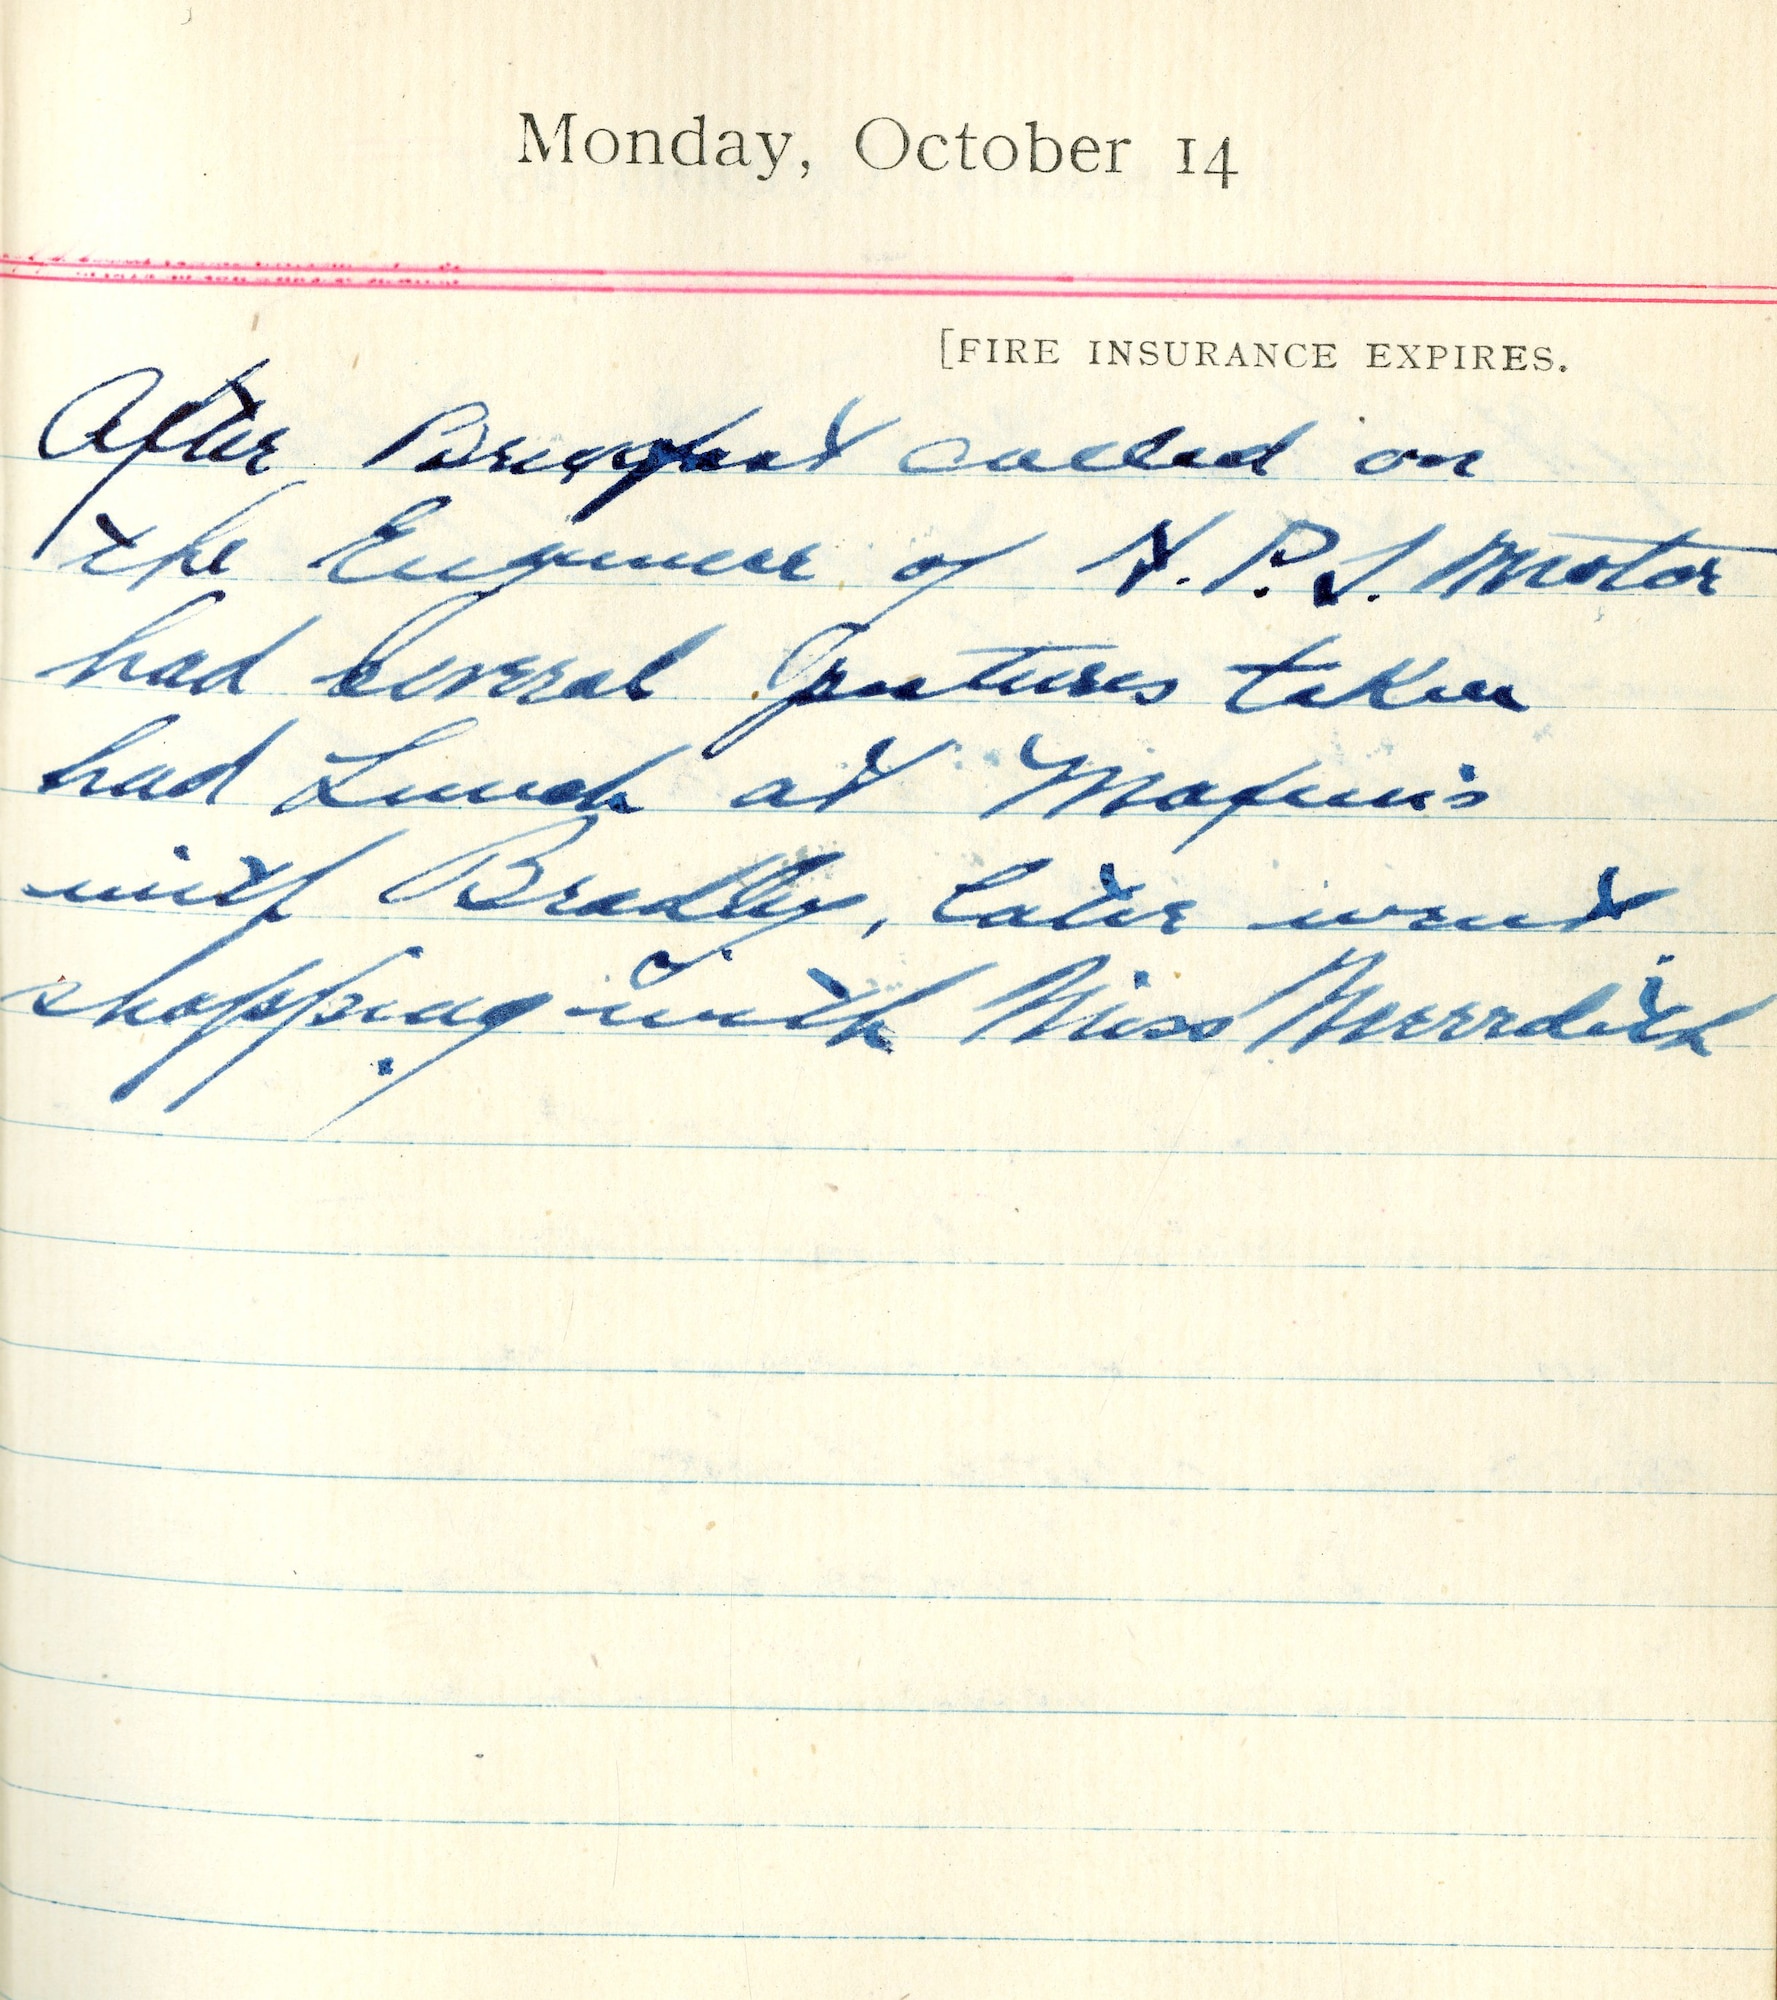 Monday, October 14
[FIRE INSURANCE EXPIRES.
After Breakfast called on
the Engineer of N.P.L. Motor
had several pictures taken
had Lunch at Maxim's
with Bradley, later went
shopping with Miss Merrdith